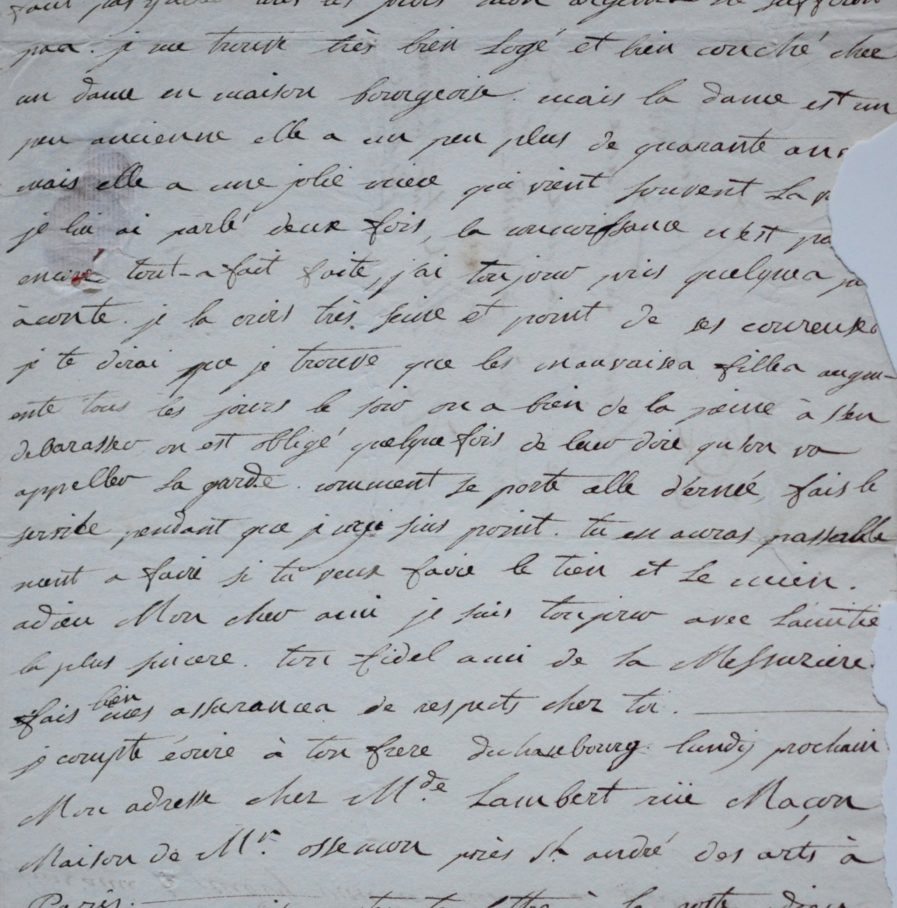 pas. je me trouve très bien Logé et bien couché chee
un dame en maison bourgeoise. mais la dame est un
peu ancienne elle a un peu plus de quarante ans
mais elle a une jolie niece qui vient souvent La
je lui ai parlé deux fois, la connoissance n'est pa
encore tout-a fait faite, j'ai toujour pris quelques
àconte. je la crois très seine et point de ses coureuses
je te dirai que je trouve que les mauvaises filles augm-
ente tous les jours le soir on a bien de la peine à s'en
debarasser on est obligé quelque fois de leur dire qu'on va
appeller La garde. comment se porte elle d'ernée, fais le
service pendant que j'y suis point. tu en auras passable
ment a faire si tu veux faire le tien et Le mien.
adieu Mon cher ami je suis toujour avec L'amitié
la plus sincere. ton fidel ami de la Messuziere.
fais bien mes assurances de respects chez toi.
je compte écrire à ton frere duhaubourg lundy prochain
Mon adresse chez Mde Lambert rüe Maçon
Maison de Mr. ossemon près St. andré des arts à
Paris.